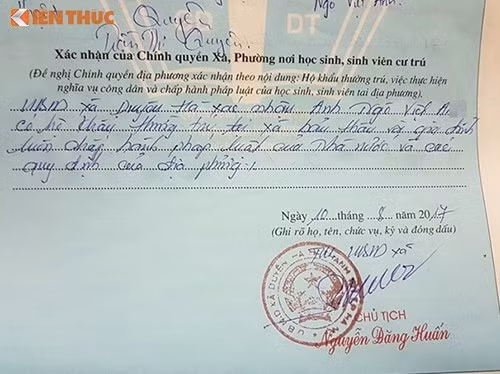 KIẾN THỨC
Quyền
Ngô Việt Anh
Trần Thị Quyền
Xác nhận của Chính quyền Xã, Phường nơi học sinh, sinh viên cư trú
(Đề nghị Chính quyền địa phương xác nhận theo nội dung: Hộ khẩu thường trú, việc thực hiện
nghĩa vụ công dân và chấp hành pháp luật của học sinh, sinh viên tai địa phương).
UBND xã Duyên Hà xác nhận Anh Ngô Việt
có hộ khẩu thường trú tại xã bản thân và gia đình
luôn chấp hành pháp luật của Nhà nước và các
quy định của địa phương.
Ngày 10 tháng 8 năm 2017
(Ghi rõ họ, tên, chức vụ, ký và đóng dấu)
TM UBND xã
U.B.N.D XÃ DUYÊN HÀ
CHỦ TỊCH
Nguyễn Đăng Huấn